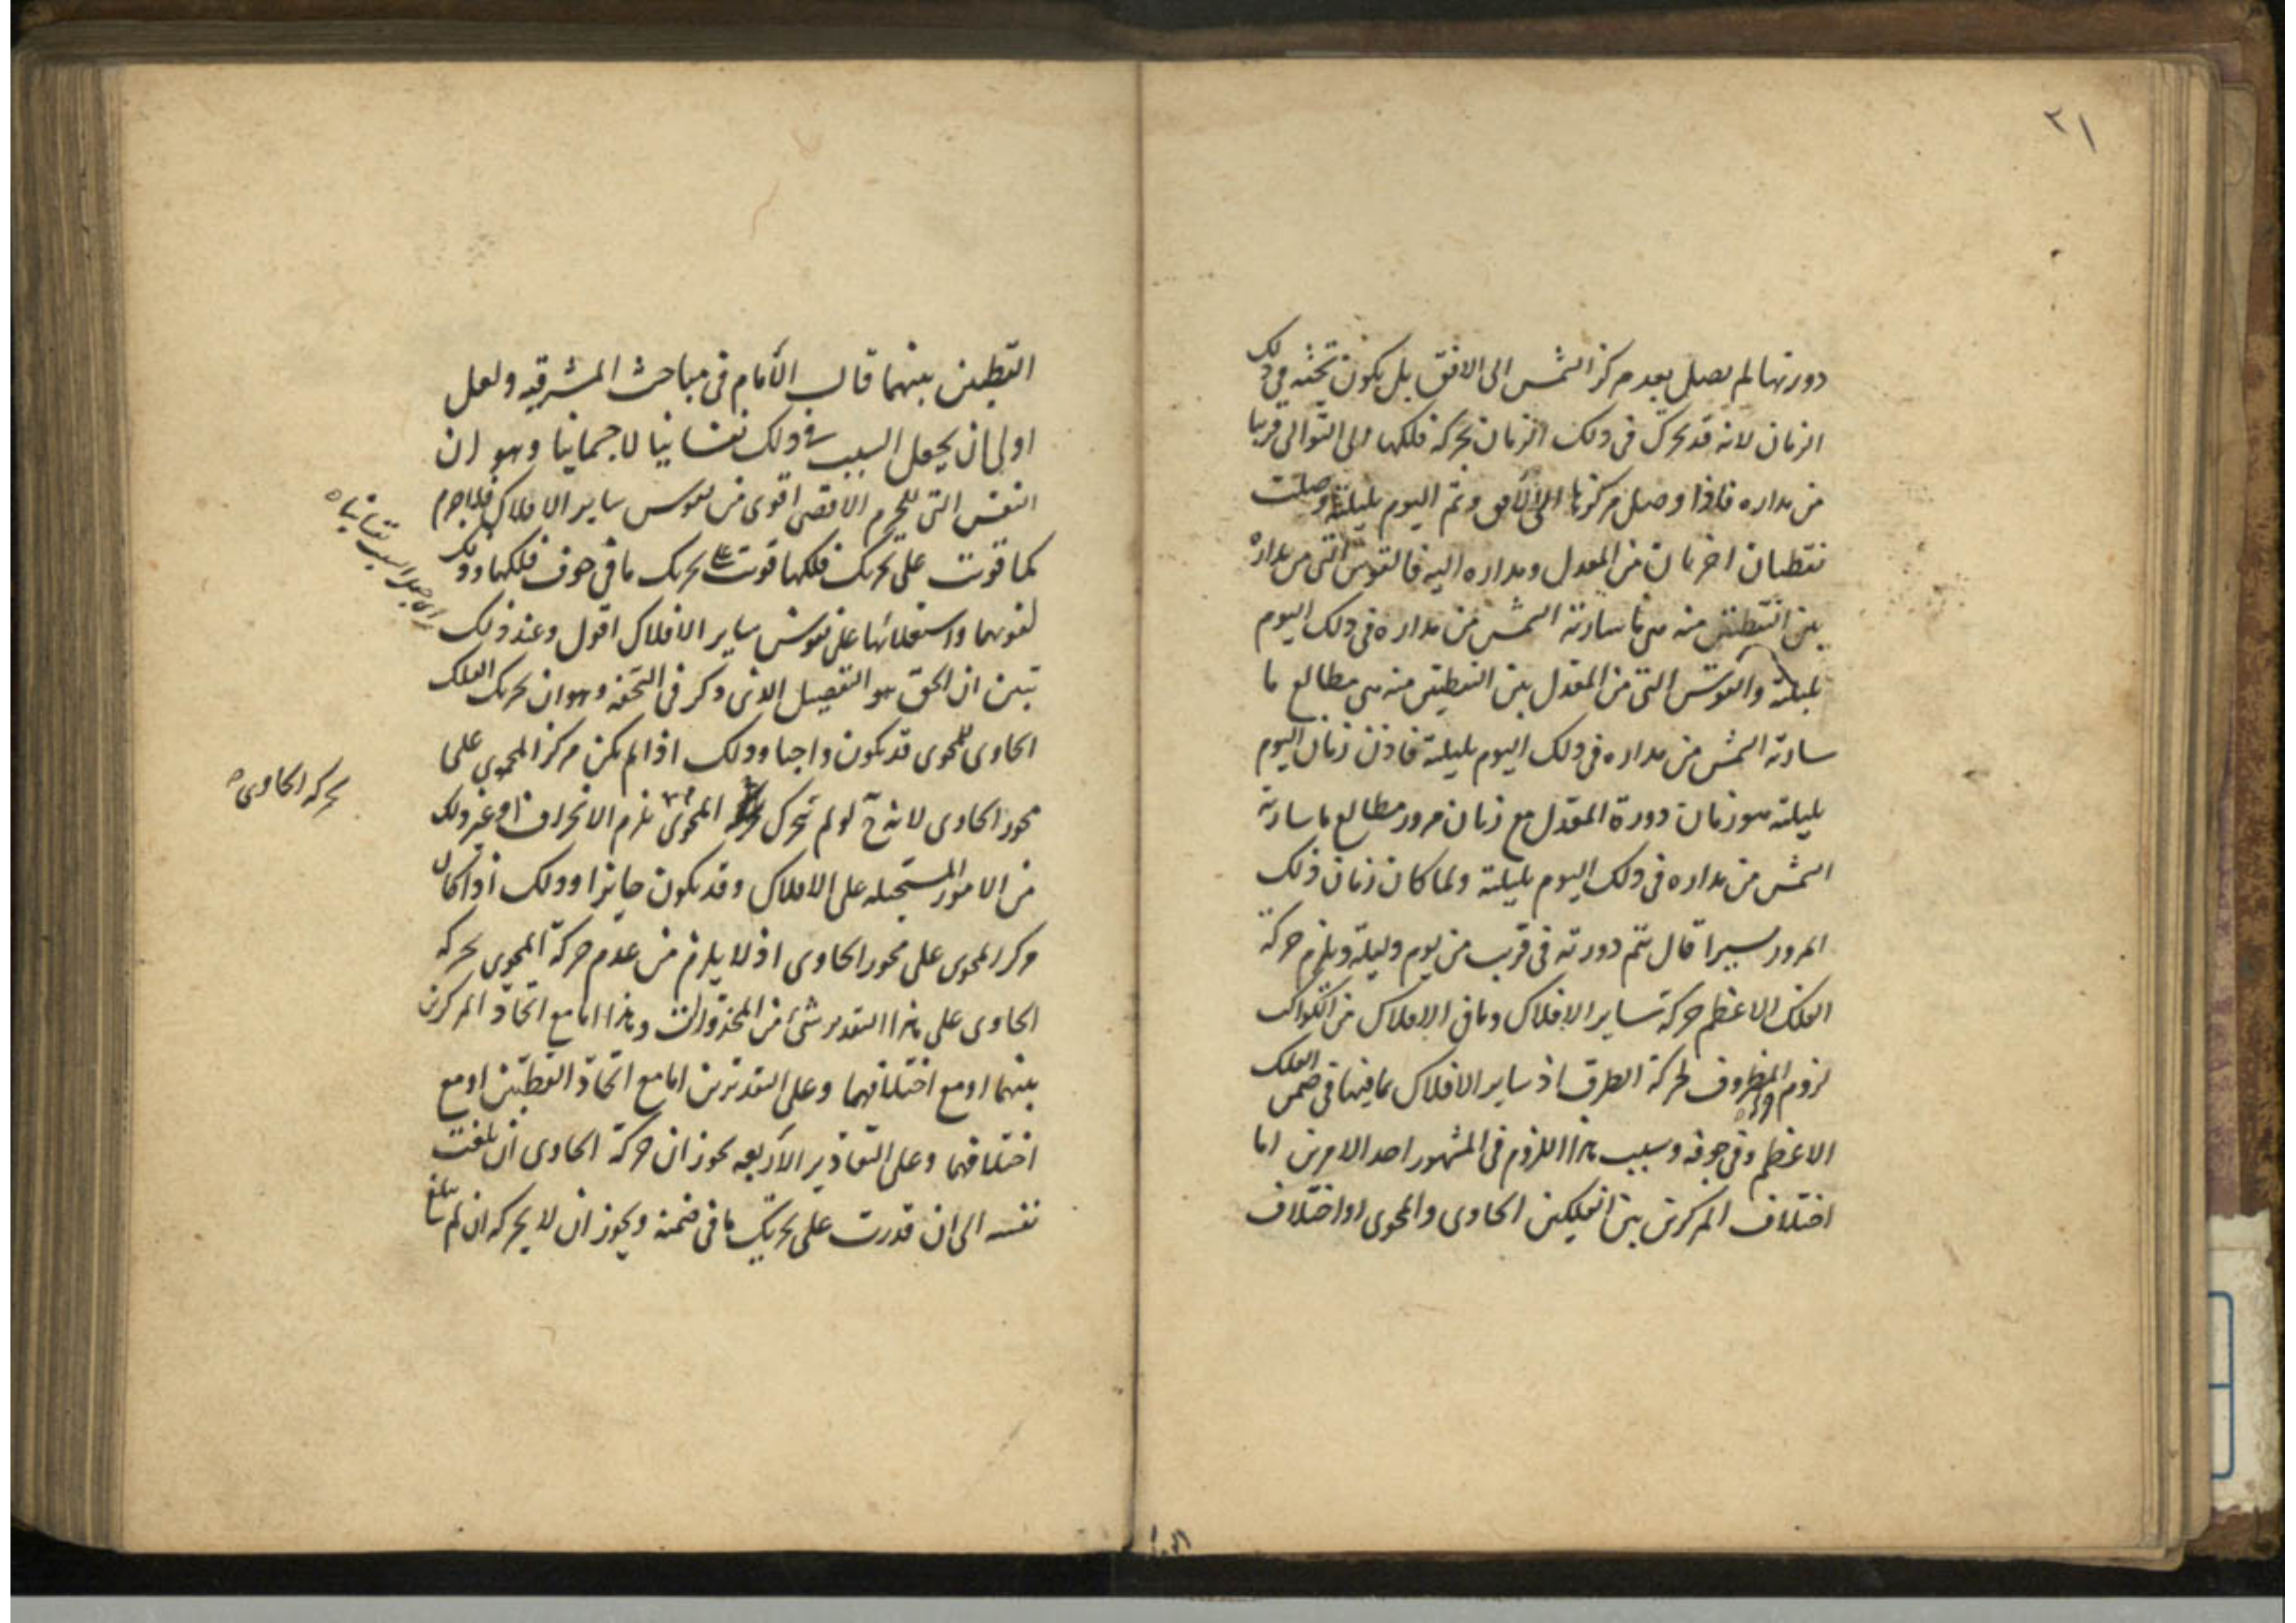 ٢١
دورتها لم يصل بعد مركز الشمس الى الافق بل يكون تحته في ذلك
الزمان لانه قد تحرك في ذلك الزمان بحركة فلكها الى التوالى قريبا
من مداره فاذا وصل مركزها الى الافق وتم اليوم بليلته وصلت
نقطتان اخريان من المعدل ومداره اليه فالقوس التي من مداره
بين النقطتين منه هي ما سارته الشمس من مداره في ذلك اليوم
بليلته والقوس التي من المعدل بين النقطتين منه هي مطالع ما
سارته الشمس من مداره في ذلك اليوم بليلته فاذن زمان اليوم
بليلته هو زمان دورة المعدل مع زمان مرور مطالع ما سارته
الشمس من مداره في ذلك اليوم بليلته ولما كان زمان ذلك
المرور يسيرا قال تتم دورته في قريب من يوم وليلة ويلزم حركة
الفلك الاعظم حركة ساير الافلاك وما في الافلاك من الكواكب
لزوم المظروف لحركة الظرف اذ ساير الافلاك بما فيها في ضمن الفلك
الاعظم وفي جوفه وسبب هذا اللزوم في المشهور احد الامرين اما
اختلاف المركزين بين الفلكين الحاوى والمحوى او اختلاف
القطبين بينهما قال الامام في مباحث المشرقيه ولعل
اولى ان يجعل السبب في ذلك نفسانيا لا جسمانيا وهو ان
النفس التي للجرم الاقصى اقوى من نفوس ساير الافلاك فلا جرم
كما قويت على تحريك فلكها قويت على تحريك ما في جوف فلكها وذلك
لقوتها واستعلائها على نفوس ساير الافلاك اقول وعند ذلك
تبين ان الحق هو التفصيل الذي ذكر في التحفه وهو ان تحريك الفلك
الحاوى للمحوى قد يكون واجبا وذلك اذا لم يكن مركز المحوى على
محور الحاوى لانه ح لو لم يتحرك المحوى يلزم الانخراف او غير ذلك
من الامور المستحيله على الافلاك وقد يكون جايزا وذلك اذا كان
مركز المحوى على محور الحاوى اذ لا يلزم من عدم حركة المحوى بحركة
الحاوى على هذا التقدير شئ من المحذورات وهذا اما مع اتحاد المركزين
بينهما او مع اختلافهما وعلى التقديرين اما مع اتحاد القطبين او مع
اختلافهما وعلى التقادير الاربعه يجوز ان حركة الحاوى ان بلغت
نفسه الى ان قدرت على تحريك ما في ضمنه ويجوز ان لا يحركه ان لم تبلغ
اى جعل السبب نفسانيا ٥
بحركة الحاوى ٥